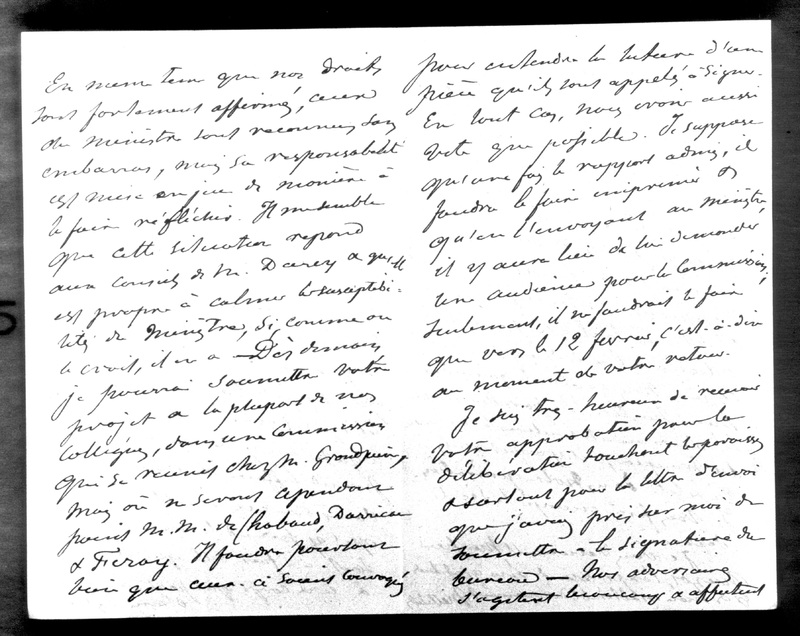 En meme tems que nos droits
sont fortement affirmés, ceux
du Ministre sont reconnus sans
embarras, mais sa responsabilité
est mise en jeu de manière à
le faire réfléchir. Il me semble
que cette situation repond
aux conseils de M. Darcy & qu'elle
est propre à calmer les susceptibi-
lités du Ministre, si, comme on
le croit, il en a — Dès demain
je pourrai soumettre votre
projet a la plupart de nos
Collègues, dans une Commission
qui se reunit chez M. Grandpierre,
mais où ne seront cependant
point M.M. de Chabaud, Darricau
& Feray. Il faudra pourtant
bien que ceux-ci soient convoqués
pour entendre la lecture d'une
pièce qu'ils sont appelés à signer.
En tout cas, nous irons aussi
vite que possible. Je suppose
qu'une fois le rapport admis, il
faudra le faire imprimer &
qu'en l'envoyant au Ministre,
il y aura lieu de lui demander
une audience pour la Commission;
seulement, il ne faudrait le faire
que vers le 12 fevrier, c'est-à-dire
au moment de votre retour.
Je suis très-heureux de recevoir
votre approbation pour la
délibération touchant les paroisses
& surtout pour la lettre d'envoi
que j'avais pris sur moi de
soumettre à la signature du
bureau — Nos adversaires
s'agitent beaucoup & affectent